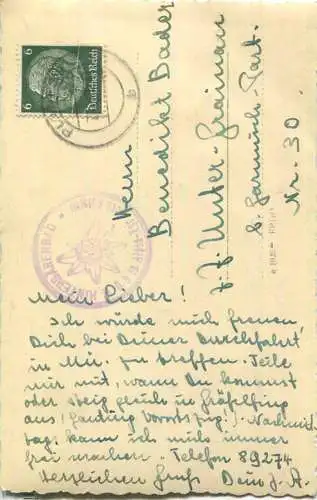 6 6
Deutsches Reich
Herrn
Benedikt Bader
z. Z. Unter-Grainau
b. Garmisch-Part.
Nr. 30.
Mein Lieber!
Ich würde mich freuen
Dich bei Deiner Durchfahrt
in Mü. zu treffen. Teile
mir mit, wann Du kommst
oder steig gleich in Gräfelfing
aus! Nachmit
tags kann ich mich immer
frei machen. Telefon 89274
Herzlichen Gruß Dein J. A.